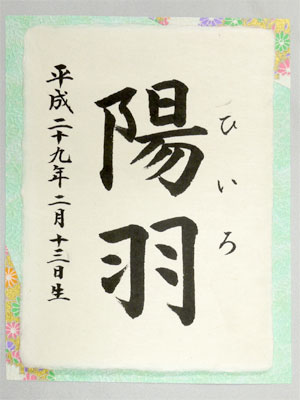 ひいろ
陽羽
平成二十九年二月十三日生